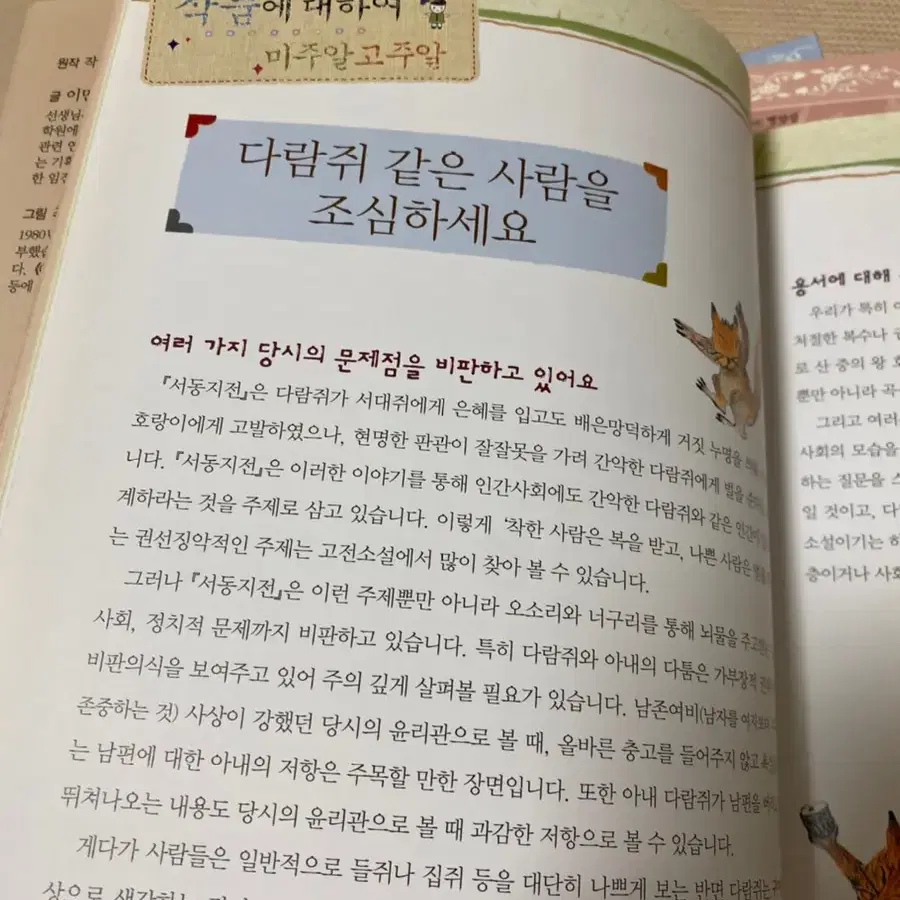 작품에 대하여
미주알고주알
다람쥐 같은 사람을
조심하세요
여러 가지 당시의 문제점을 비판하고 있어요
『서동지전』은 다람쥐가 서대쥐에게 은혜를 입고도 배은망덕하게 거짓 누명을
호랑이에게 고발하였으나, 현명한 판관이 잘잘못을 가려 간악한 다람쥐에게 벌을
니다. 『서동지전』은 이러한 이야기를 통해 인간사회에도 간악한 다람쥐와 같은 인간이
계하라는 것을 주제로 삼고 있습니다. 이렇게 ‘착한 사람은 복을 받고, 나쁜 사람은
는 권선징악적인 주제는 고전소설에서 많이 찾아 볼 수 있습니다.
그러나 『서동지전』은 이런 주제뿐만 아니라 오소리와 너구리를 통해 뇌물을
사회, 정치적 문제까지 비판하고 있습니다. 특히 다람쥐와 아내의 다툼은 가부장적
비판의식을 보여주고 있어 주의 깊게 살펴볼 필요가 있습니다. 남존여비(남자를
존중하는 것) 사상이 강했던 당시의 윤리관으로 볼 때, 올바른 충고를 들어주지 않고
는 남편에 대한 아내의 저항은 주목할 만한 장면입니다. 또한 아내 다람쥐가 남편을
뛰쳐나오는 내용도 당시의 윤리관으로 볼 때 과감한 저항으로 볼 수 있습니다.
게다가 사람들은 일반적으로 들쥐나 집쥐 등을 대단히 나쁘게 보는 반면 다람쥐는
상으로 생각하는
원작 작
글 이민
선생님
학원에
관련 연
는 기획
한 임진
그림
1980년
부했습
다.
등에
용서에 대해
우리가 특히
처절한 복수나
로 산 중의 왕
뿐만 아니라
그리고 여러
사회의 모습을
하는 질문을
일 것이고,
소설이기는
층이거나 사회